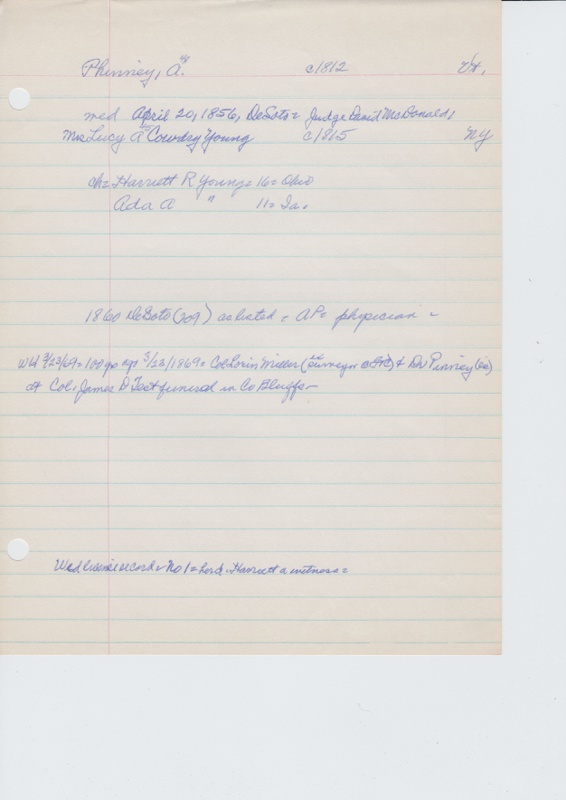 Phinney, A. c1812 Vt.
med April 20, 1856, DeSoto = Judge David McDonald,
Mrs Lucy A Cowdry Young c1815 NY
ch = Harriett R Young = 16 = Ohio
Ada A " 11 = Ia.
1860 DeSoto (209) as listed = AP = physician -
3/23/69 = 100 yrs ago 3/23/1869 = Col Lorin Miller (surveyor) & Dr Pinney (sic)
at Col. James D Test funeral in Co Bluffs -
Wed license record = No 1 = Harriett a witness =